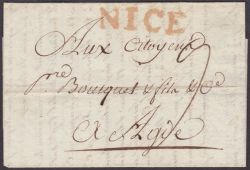 NICE
Aux Citoyens
Pre Bousquet & fils & Ce
A Agde